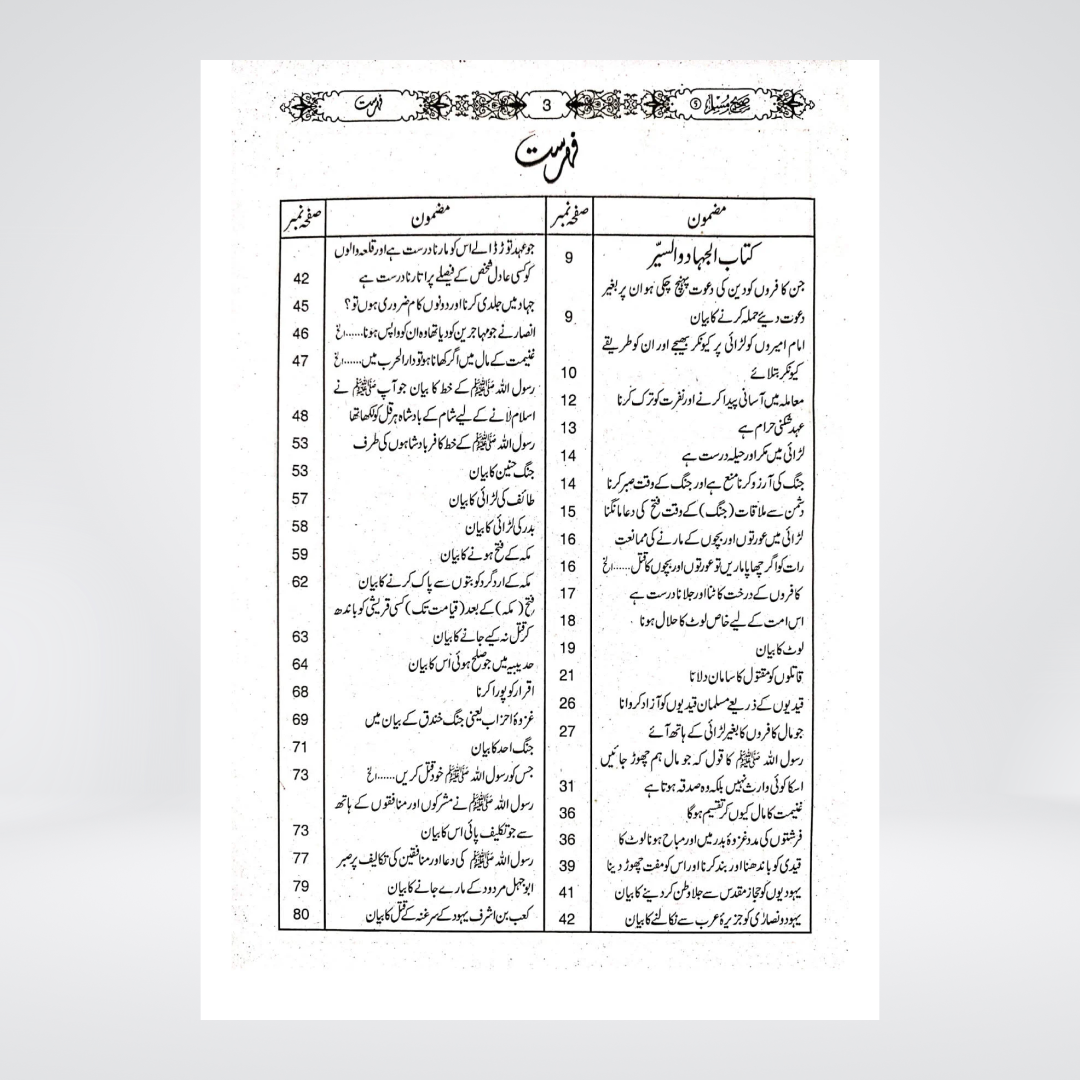 صحیح مسلم ⑤
3
فہرست
فہرست
مضمون صفحہ نمبر
کتاب الجہاد والسیّر 9
جن کافروں کو دین کی دعوت پہنچ چکی ہو ان پر بغیر
دعوت دیئے حملہ کرنے کا بیان 9
امام امیروں کو لڑائی پر کیونکر بھیجے اور ان کو طریقے
کیونکر بتلائے 10
معاملہ میں آسانی پیدا کرنے اور نفرت کو ترک کرنا 12
عہد شکنی حرام ہے 13
لڑائی میں مکر اور حیلہ درست ہے 14
جنگ کی آرزو کرنا منع ہے اور جنگ کے وقت صبر کرنا 14
دشمن سے ملاقات (جنگ) کے وقت فتح کی دعا مانگنا 15
لڑائی میں عورتوں اور بچوں کے مارنے کی ممانعت 16
رات کو اگر چھاپا ماریں تو عورتوں اور بچوں کا قتل......الخ 16
کافروں کے درخت کاٹنا اور جلانا درست ہے 17
اس امت کے لیے خاص لوٹ کا حلال ہونا 18
لوٹ کا بیان 19
قاتلوں کو مقتول کا سامان دلانا 21
قیدیوں کے ذریعے مسلمان قیدیوں کو آزاد کروانا 26
جو مال کافروں کا بغیر لڑائی کے ہاتھ آئے 27
رسول اللہ ﷺ کا قول کہ جو مال ہم چھوڑ جائیں
اسکا کوئی وارث نہیں بلکہ وہ صدقہ ہوتا ہے 31
غنیمت کا مال کیوں کر تقسیم ہوگا 36
فرشتوں کی مدد غزوۂ بدر میں اور مباح ہونا لوٹ کا 36
قیدی کو باندھنا اور بند کرنا اور اس کو مفت چھوڑ دینا 39
یہودیوں کو حجاز مقدس سے جلاوطن کر دینے کا بیان 41
یہود و نصارٰی کو جزیرۂ عرب سے نکالنے کا بیان 42
مضمون صفحہ نمبر
جو عہد توڑ ڈالے اس کو مارنا درست ہے اور قلعہ والوں
کو کسی عادل شخص کے فیصلے پر اتارنا درست ہے 42
جہاد میں جلدی کرنا اور دونوں کام ضروری ہوں تو؟ 45
انصار نے جو مہاجرین کو دیا تھا وہ ان کو واپس ہونا......الخ 46
غنیمت کے مال میں اگر کھانا ہو تو دار الحرب میں......الخ 47
رسول اللہ ﷺ کے خط کا بیان جو آپ ﷺ نے
اسلام لانے کے لیے شام کے بادشاہ ہرقل کو لکھا تھا 48
رسول اللہ ﷺ کے خط کافر بادشاہوں کی طرف 53
جنگ حنین کا بیان 53
طائف کی لڑائی کا بیان 57
بدر کی لڑائی کا بیان 58
مکہ کے فتح ہونے کا بیان 59
مکہ کے ارد گرد کو بتوں سے پاک کرنے کا بیان 62
فتح (مکہ) کے بعد (قیامت تک) کسی قریشی کو باندھ
کر قتل نہ کیے جانے کا بیان 63
حدیبیہ میں جو صلح ہوئی اس کا بیان 64
اقرار کو پورا کرنا 68
غزوۂ احزاب یعنی جنگ خندق کے بیان میں 69
جنگ احد کا بیان 71
جس کو رسول اللہ ﷺ خود قتل کریں......الخ 73
رسول اللہ ﷺ نے مشرکوں اور منافقوں کے ہاتھ
سے جو تکلیف پائی اس کا بیان 73
رسول اللہ ﷺ کی دعا اور منافقین کی تکالیف پر صبر 77
ابوجہل مردود کے مارے جانے کا بیان 79
کعب بن اشرف یہود کے سرغنہ کے قتل کا بیان 80